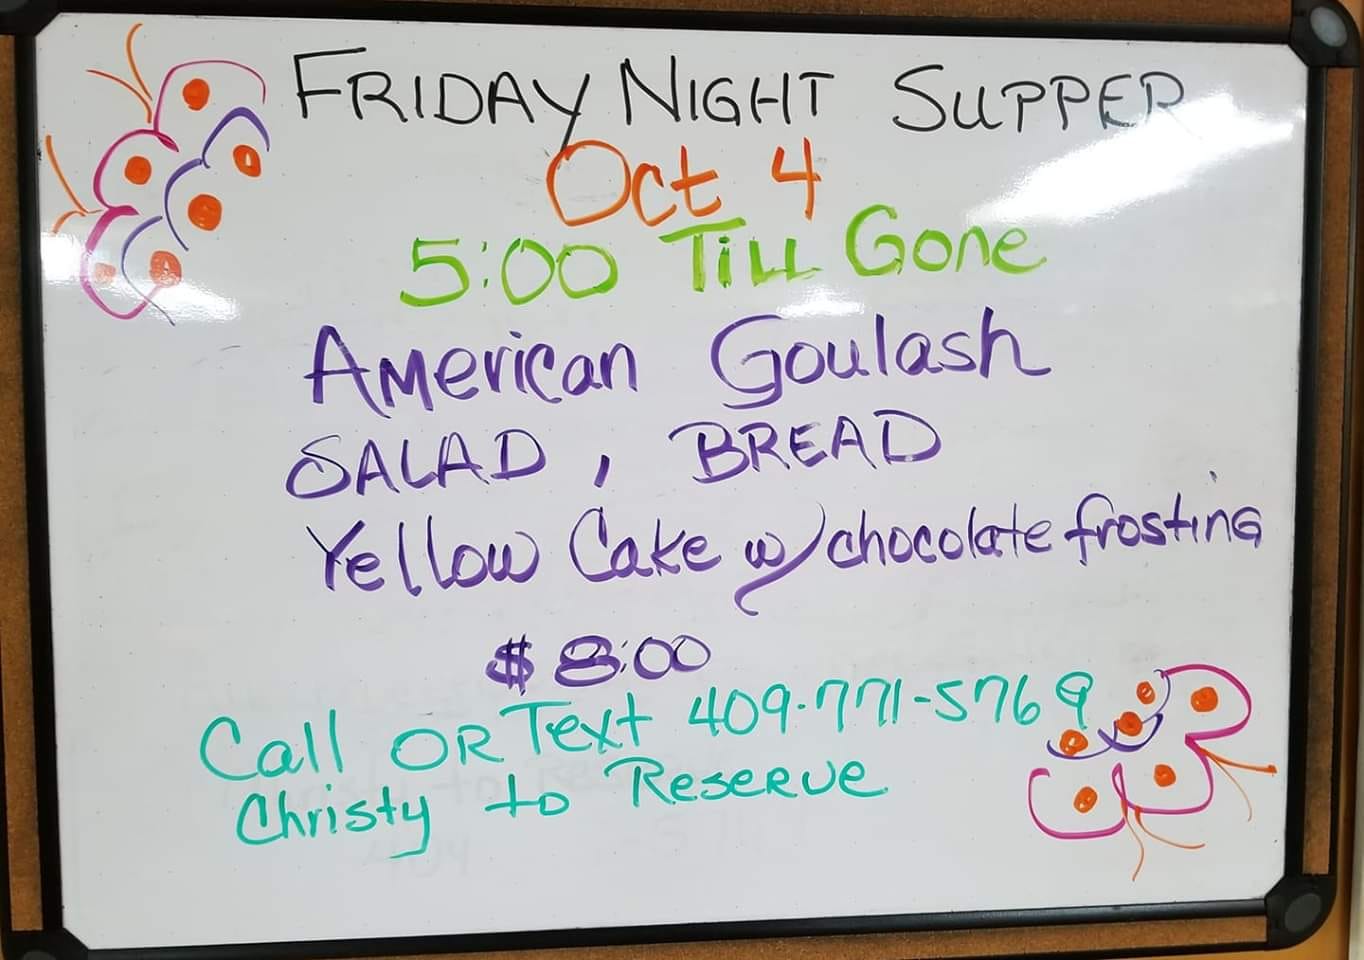 FRIDAY NIGHT SUPPER
Oct 4
5:00 Till Gone
American Goulash
SALAD, BREAD
Yellow Cake w/chocolate frosting
$8:00
Call OR Text 409-771-5769
Christy to Reserve